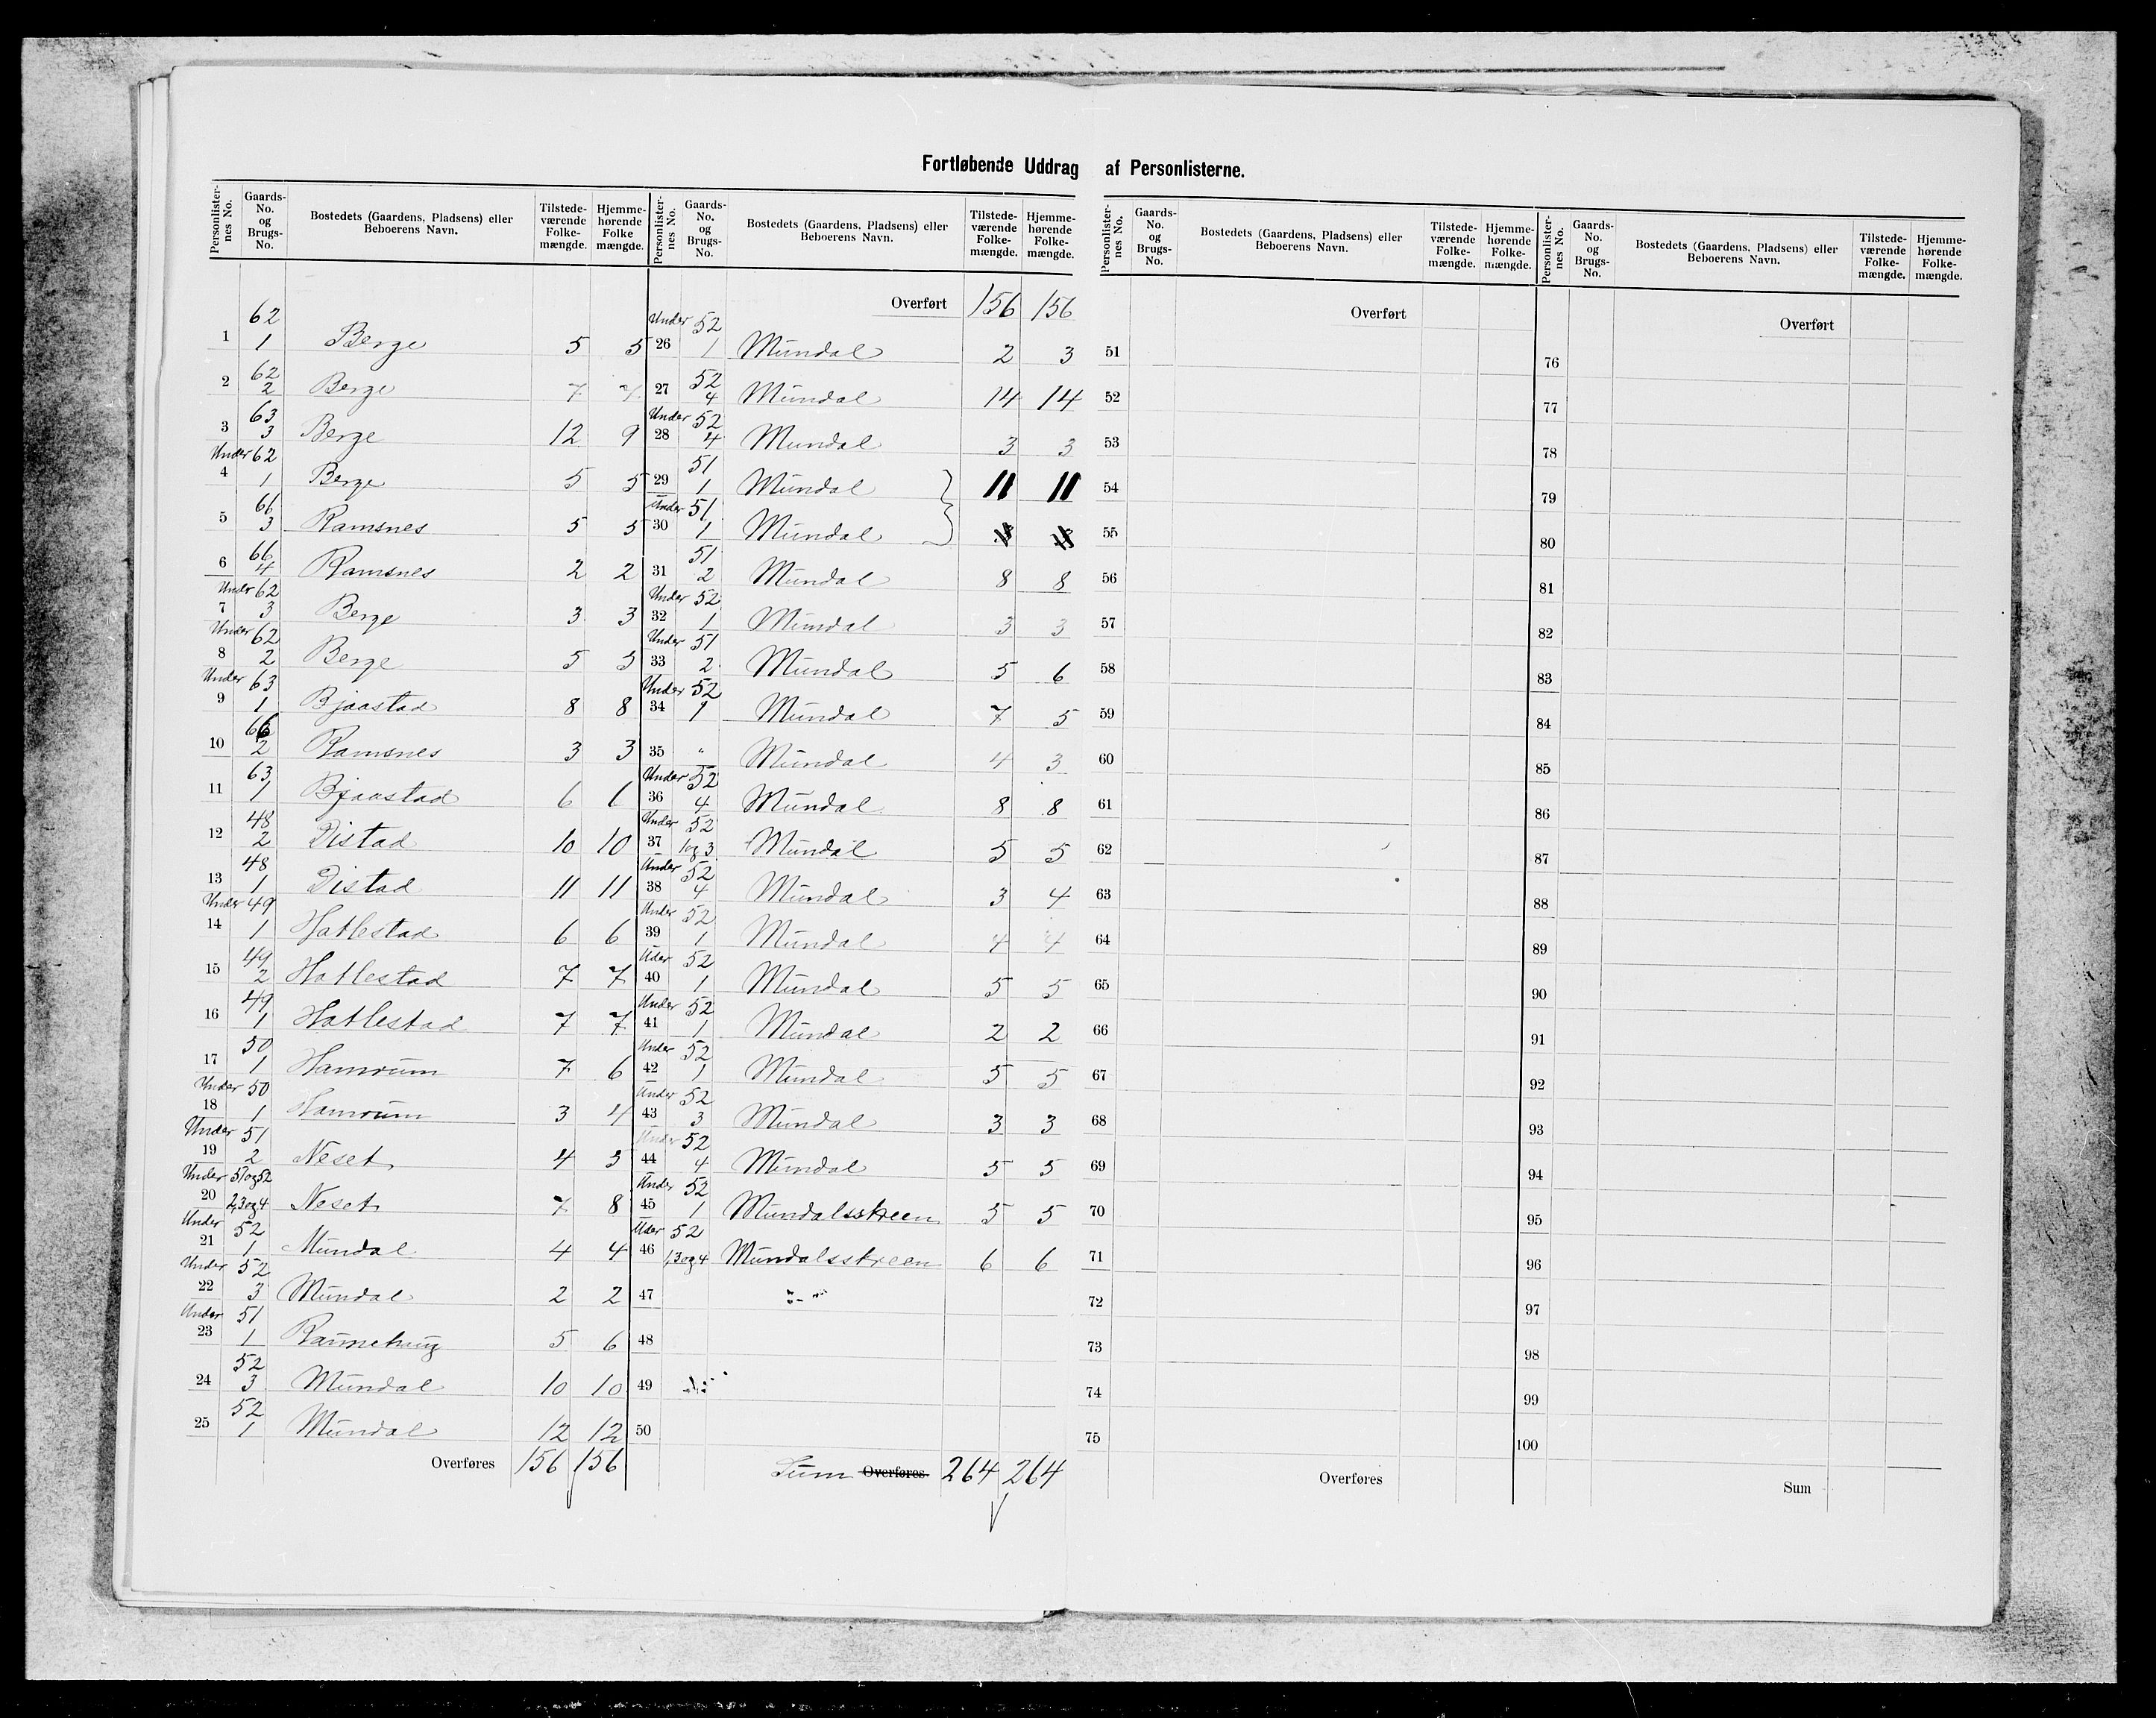 Fortløbende Uddrag af Personlisterne.
Personlister-nes No. | Gaards-No. og Brugs-No. | Bostedets (Gaardens, Pladsens) eller Beboerens Navn. | Tilstede-værende Folke-mængde. | Hjemme-hørende Folke mængde.
1 | 62 1 | Berge | 5 | 5
2 | 62 2 | Berge | 7 | 7
3 | 63 3 | Berge | 12 | 9
Under 4 | 62 1 | Berge | 5 | 5
5 | 66 3 | Ramsnes | 5 | 5
6 | 66 4 | Ramsnes | 2 | 2
Undr 7 | 62 3 | Berge | 3 | 3
Under 8 | 62 2 | Berge | 5 | 5
Under 9 | 63 1 | Bjaastad | 8 | 8
10 | 66 2 | Ramsnes | 3 | 3
11 | 63 1 | Bjaastad | 6 | 6
12 | 48 2 | Distad | 10 | 10
13 | 48 1 | Distad | 11 | 11
Under 14 | 49 1 | Hatlestad | 6 | 6
15 | 49 2 | Hatlestad | 7 | 7
16 | 49 1 | Hatlestad | 7 | 7
17 | 50 1 | Hamrum | 7 | 6
Under 18 | 50 1 | Hamrum | 3 | 4
Under 19 | 51 2 | Neset | 4 | 5
Under 20 | 51og52 2,3og4 | Neset | 7 | 8
Under 21 | 52 1 | Mundal | 4 | 4
Under 22 | 52 3 | Mundal | 2 | 2
Under 23 | 51 1 | 5 | 6
24 | 52 3 | Mundal | 10 | 10
25 | 52 1 | Mundal | 12 | 12
Overføres 156 156
Personlister-nes No. | Gaards-No. og Brugs-No. | Bostedets (Gaardens, Pladsens) eller Beboerens Navn. | Tilstede-værende Folke-mængde. | Hjemme-hørende Folke-mængde.
Overført 156 156
Under 26 | 52 1 | Mundal | 2 | 3
27 | 52 4 | Mundal | 14 | 14
Under 28 | 52 4 | Mundal | 3 | 3
29 | 51 1 | Mundal | 11 | 11
Under 30 | 51 1 | Mundal
31 | 51 2 | Mundal | 8 | 8
Under 32 | 52 1 | Mundal | 3 | 3
Under 33 | 51 2 | Mundal | 5 | 6
Under 34 | 52 1 | Mundal | 7 | 5
35 | " | Mundal | 4 | 3
Under 36 | 52 4 | Mundal | 8 | 8
Under 37 | 52 1og3 | Mundal | 5 | 5
Under 38 | 52 4 | Mundal | 3 | 4
Under 39 | 52 1 | Mundal | 4 | 4
Uder 40 | 52 1 | Mundal | 5 | 5
Under 41 | 52 1 | Mundal | 2 | 2
Under 42 | 52 1 | Mundal | 5 | 5
Under 43 | 52 3 | Mundal | 3 | 3
Under 44 | 52 4 | Mundal | 5 | 5
Under 45 | 52 1 | Mundalsskreen | 5 | 5
Uder 46 | 52 1,3og4 | Mundalsskreen | 6 | 6
47
48
49
50
Sum Overføres 264 264
Personlister-nes No. | Gaards-No. og Brugs-No. | Bostedets (Gaardens, Pladsens) eller Beboerens Navn. | Tilstede-værende Folke-mængde. | Hjemme-hørende Folke-mængde.
Overført
51
52
53
54
55
56
57
58
59
60
61
62
63
64
65
66
67
68
69
70
71
72
73
74
75
Overføres
Personlister-nes No. | Gaards-No. og Brugs-No. | Bostedets (Gaardens, Pladsens) eller Beboerens Navn. | Tilstede-værende Folke-mængde. | Hjemme-hørende Folke-mængde.
Overført
76
77
78
79
80
81
82
83
84
85
86
87
88
89
90
91
92
93
94
95
96
97
98
99
100
Sum